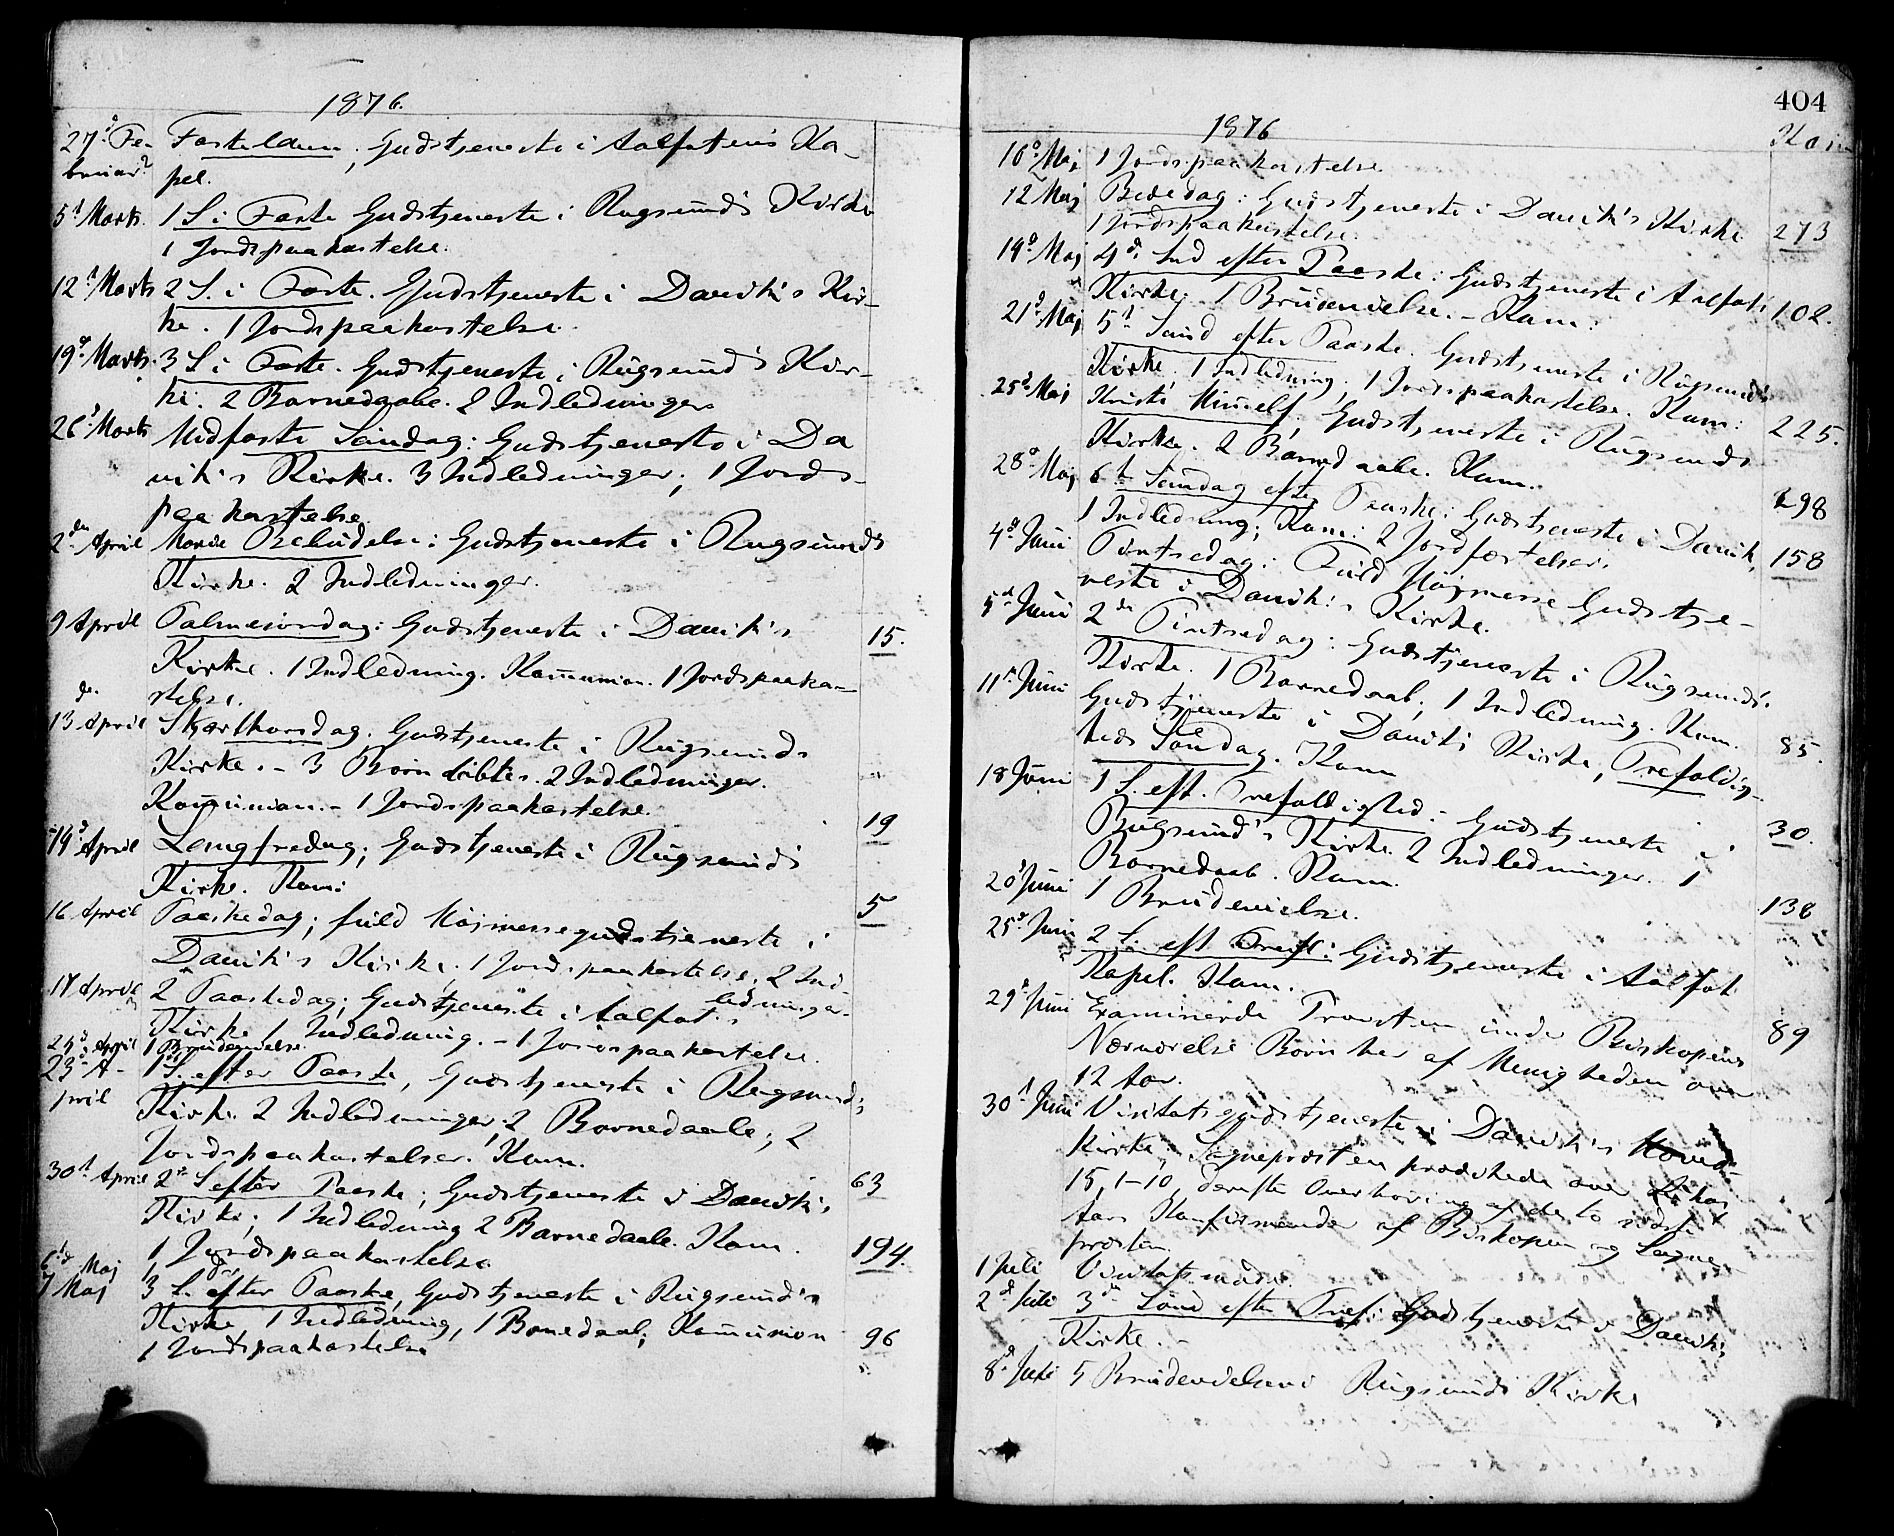 1876.
27d Fe- Fastelavn; Gudstjeneste i Aalfotens Ka-
bruar pel.
5t Marts. 1 S. i Faste Gudstjeneste i Rugsunds Kirke
1 Jordspaakastelse.
12t Marts 2 S. i Faste. Gudstjeneste i Daviks Kir-
ke. 1 Jordspaakastelse.
19d Marts. 3 S. i Faste. Gudstjeneste i Rugsunds Kir-
ke. 2 Barnedaabe. 2 Indledninger
26d Marts Midfaste Søndag: Gudstjeneste i Da
vik's Kirke. 3 Indledninger; 1 Jords-
paakastelse
2den April Marie Bebudelse: Gudstjeneste i Rugsunds
Kirke. 2 Indledninger.
9 April Palmesøndag: Gudstjeneste i Davik's 15.
Kirke. 1 Indledning. Kommunion. 1 Jordspaaka-
stelse.
13de April Skjærthorsdag. Gudstjeneste i Rugsunds
Kirke. - 3 Børn døbte. 2 Indledninger.
Kommunion. - 1 Jordspaakastelse. 19
14d April Langfredag; Gudstjeneste i Rugsunds
Kirke. Kom: 5
16 April Paaskedag; fuld Høimessegudstjeneste i
Davik's Kirke. 1 Jordspaakastelse; 2 Ind-
ledninger.
17 April 2 Paaskedag; Gudstjeneste i Aalfot
Kirke 1 Indledning. - 1 Jordspaakastelse.
April 1 Brudevielse.
23d A- 1 S. efter Paaske, Gudstjeneste i Rugsunds
pril Kirke. 2 Indledninger; 2 Barnedaabe; 2
Jordspaakastelser. Kom. 63
30t April 2d S efter Paaske; Gudstjeneste i Daviks
Kirke; 1 Indledning 2 Barnedaabe. Kom. 194.
6te Maj 1 Jordspaakastelse
7 Maj 3 S. efter Paaske, Gudstjeneste i Rugsund's
Kirke 1 Indledning, 1 Barnedaab; Kommunion 96
1 Jordspaakastelse
404
1876
Kom
10d Maj 1 Jordspaakastelse
12 Maj Bededag: Gudstjeneste i Davik's Kirke 273
1 Jordspaakastelse.
19d Maj 4d Snd efter Paaske: Gudstjeneste i Aalfot 102.
Kirke. 1 Brudevielse. - Kom:
21d Maj 5t Sønd efter Paaske. Gudstjeneste i Rugsunds
Kirke. 1 Indledning; 1 Jordspaakastelse. Kom: 225.
25d Maj Kristi Himmelf. Gudstjeneste i Rugsunds
Kirke. 2 Barnedaabe. Kom. 298
28d Maj 6t Søndag efter Paaske: Gudstjeneste i Davik,
1 Indledning; Kom: 2 Jordfæstelser. 158
4d Juni Pintsedag: Fuld Højmesse Gudstje-
neste i Davik's Kirke.
5d Juni 2den Pintsedag: Gudstjeneste i Rugsunds
Kirke. 1 Barnedaab; 1 Indledning. Kom. 85.
11t Juni Gudstjeneste i Daviks Kirke, Trefoldig-
heds Søndag. Kom 30.
18 Juni 1 S. eft. Trefoldighed. - Gudstjeneste i
Rugsund's Kirke. 2 Indledninger. 1
Barnedaab. Kom. 138
20d Juni 1 Brudevielse.
25d Juni 2 S. eft Tref: Gudstjeneste i Aalfot
Kapel. Kom. 89
29d Juni Examinerede Provsten under Biskopens
Nærværelse Børn her af Menigheden over
12 Aar.
30t Juni Visitatsgudstjeneste i Davik's Hoved-
kirke; Sognepræsten prædikede over
15, 1-10, derefter Overhøring af de to sidste
Aars Konfirmander af Biskopen og Sogne-
præsten.
1 Juli Visitatsmøde.
2d Juli 3die Sønd efter Tref: Gudstjeneste i Daviks
Kirke. -
8d Juli 5 Brudevielser i Rugsunds Kirke